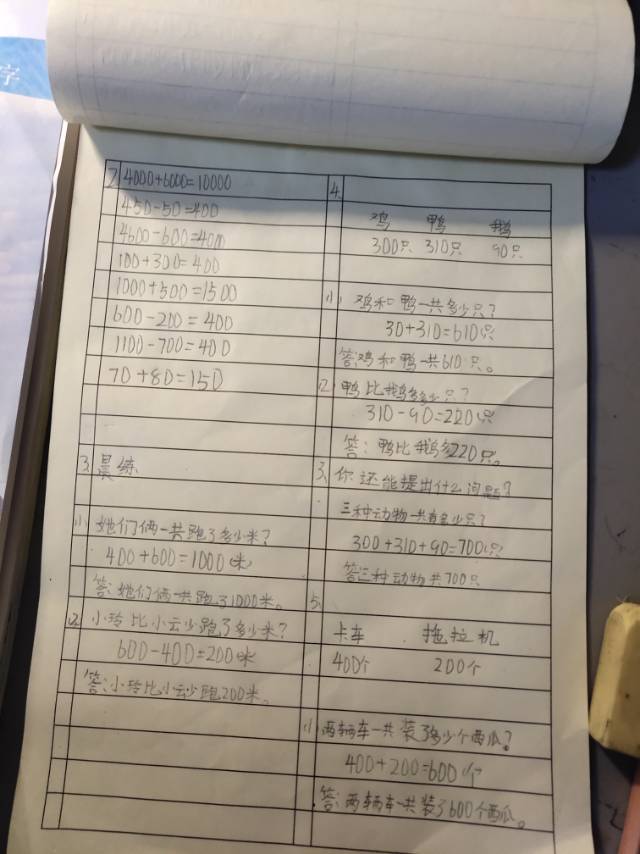 字
2. 4000+6000=10000
450-50=400
4600-600=4000
100+300=400
1000+500=1500
600-200=400
1100-700=400
70+80=150
3. 晨练
(1) 她们俩一共跑了多少米?
400+600=1000(米)
答:她们俩一共跑了1000米。
(2) 小玲比小云少跑了多少米?
600-400=200(米)
答:小玲比小云少跑200米。
4.
鸡 鸭 鹅
300只 310只 90只
(1) 鸡和鸭一共多少只?
30+310=610(只)
答:鸡和鸭一共610只。
(2) 鸭比鹅多多少只?
310-90=220(只)
答:鸭比鹅多220只。
3. 你还能提出什么问题?
三种动物一共有多少只?
300+310+90=700(只)
答:三种动物共700只
5.
卡车 拖拉机
400个 200个
(1) 两辆车一共装了多少个西瓜?
400+200=600(个)
答:两辆车一共装了600个西瓜。